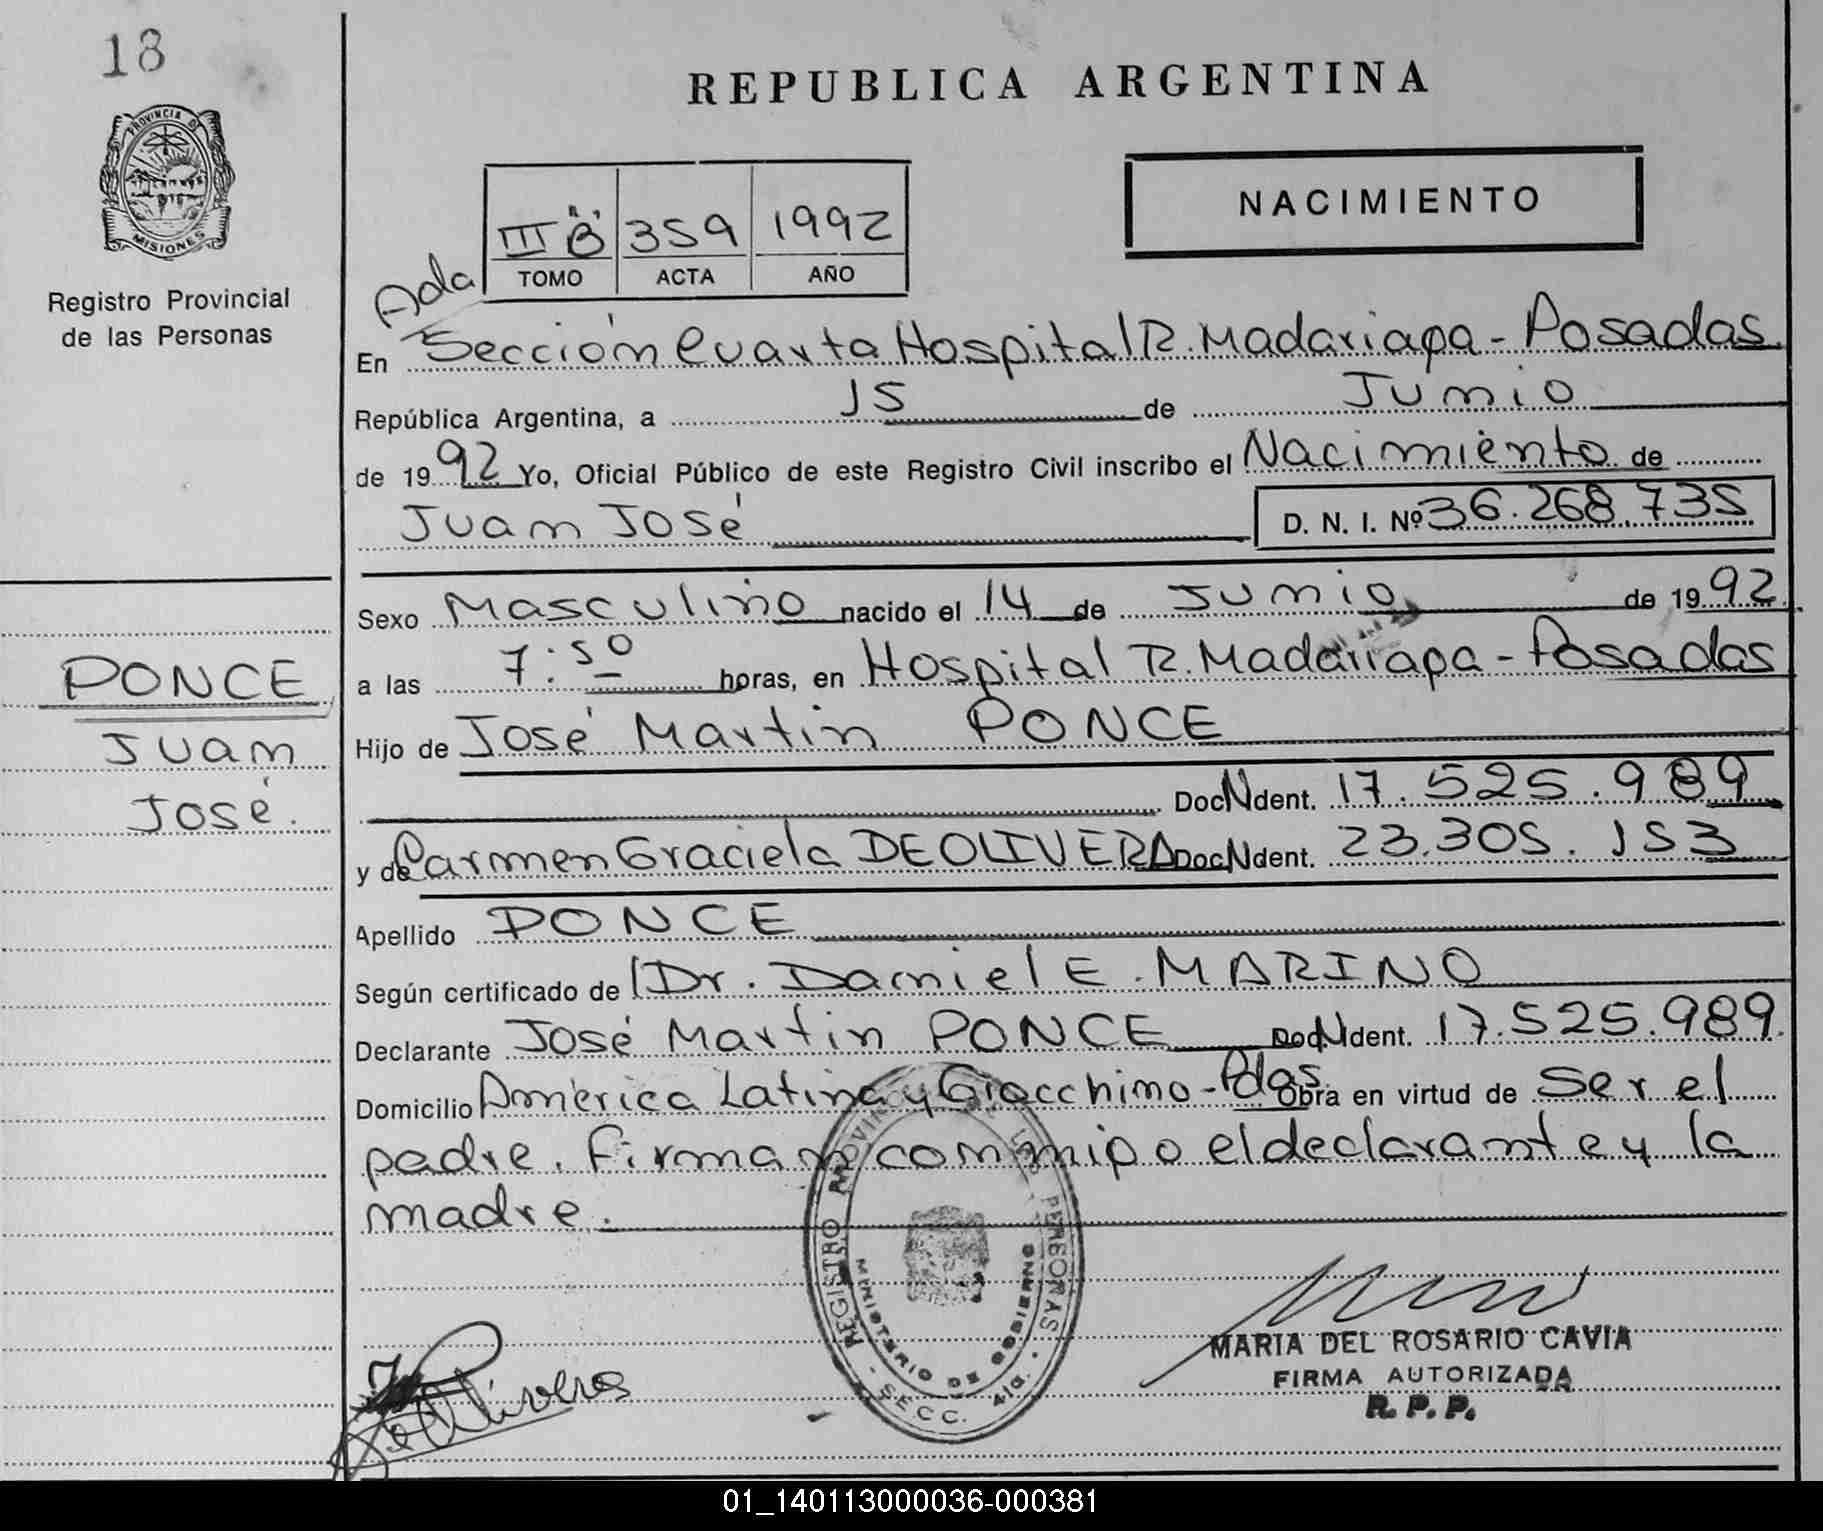 18
PROVINCIA DE
MISIONES
Registro Provincial
de las Personas
PONCE
Juan
José.
REPUBLICA ARGENTINA
NACIMIENTO
III "B" 359 1992
TOMO ACTA AÑO
Ada
En Sección Cuarta Hospital R. Madariaga - Posadas
República Argentina, a 15 de Junio
de 1992 Yo, Oficial Público de este Registro Civil inscribo el Nacimiento de
Juan José D. N. I. Nº 36.268.735
Sexo Masculino nacido el 14 de Junio de 1992
a las 7:50 horas, en Hospital R. Madariaga - Posadas
Hijo de José Martin PONCE
Doc N Ident. 17.525.989
y de Carmen Graciela DE OLIVERA Doc N Ident. 23.305.153
Apellido PONCE
Según certificado de Dr. Daniel E. MARINO
Declarante José Martin PONCE Doc N Ident. 17.525.989.
Domicilio América Latina y Giacchino - Pdas. Obra en virtud de Ser el
padre. Firman conmigo el declarante y la
madre.
REGISTRO PROVINCIAL DE LAS PERSONAS
MINISTERIO DE GOBIERNO
- SECC. 4ta. -
MARIA DEL ROSARIO CAVIA
FIRMA AUTORIZADA
R. P. P.
01_140113000036-000381